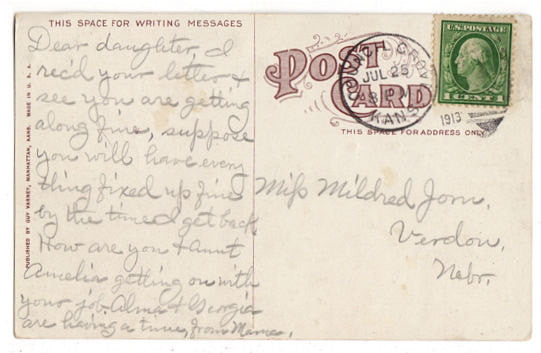 THIS SPACE FOR WRITING MESSAGES
Dear daughter, I
rec'd your letter &
see you are getting
along fine, suppose
you will have every
thing fixed up fine
by the time I get back.
How are you & aunt
Amelia getting on with
your job. Alma & Georgia
are having a time, from Mama.
PUBLISHED BY GUY VARNEY, MANHATTAN, KANS. MADE IN U. S. A.
POST
CARD
THIS SPACE FOR ADDRESS ONLY
COUNCIL GROVE
JUL 25
8 PM
KANS
1913
U.S. POSTAGE
1 CENT 1
Miss Mildred Jorn,
Verdon,
Nebr.